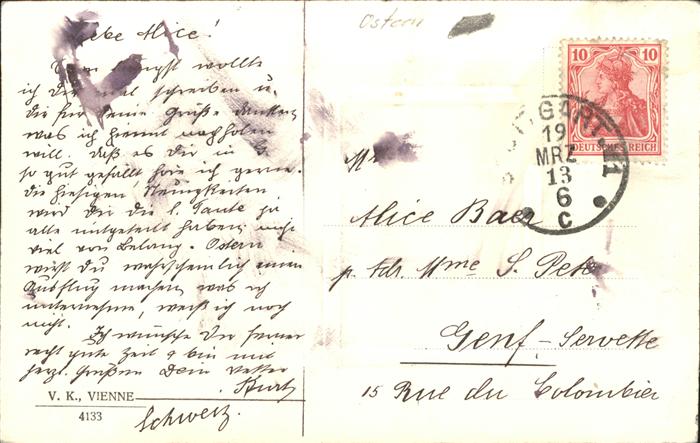 Ostern
Liebe Alice!
Schon längst wollte
ich Dir mal schreiben u.
Dir für Deine Grüße danken,
was ich hiermit nachholen
will. Daß es Dir in G.
so gut gefällt höre ich gerne.
Die hiesigen Neuigkeiten
wird Dir die l. Tante ja
alle mitgeteilt haben,
viel von Belang. Ostern
wirst Du wahrscheinlich einen
Ausflug machen, was ich
unternehme, weiß ich noch
nicht.
Ich wünsche Dir ferner
recht gute Zeit & bin mit
herzl. Grüßen Dein Vetter
Kurt
V. K., VIENNE
4133
Schweiz.
10 10
DEUTSCHES REICH
19
MRZ
13
6
C
Alice Baer
p. Adr. Mme S. Pete
Genf-Servette
15 Rue du Colombier